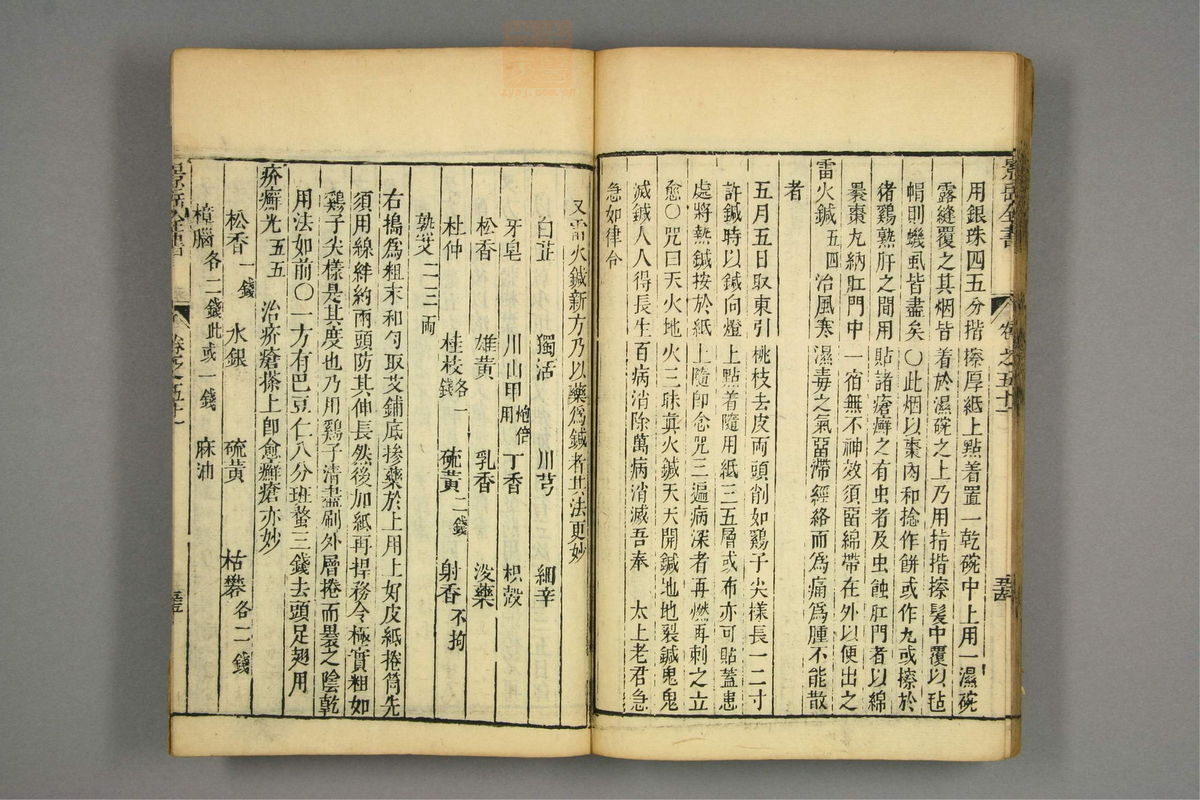 景岳全書 卷之五十一
用銀珠四五分揩擦厚紙上點着置一乾碗中上用一濕碗
露縫覆之其烟皆着於濕碗之上乃用指揩擦髮中覆以毡
帽則蟣虱皆盡矣○此烟以棗肉和捻作餅或作丸或擦於
猪鷄熟肝之間用貼諸瘡癬之有虫者及虫蝕肛門者以綿
褁棗丸納肛門中一宿無不神效須留綿帶在外以便出之
雷火鍼 五四 治風寒濕毒之氣留滯經絡而爲痛爲腫不能散
者
五月五日取東引桃枝去皮兩頭削如鷄子尖樣長一二寸
許鍼時以鍼向燈上點着隨用紙三五層或布亦可貼蓋患
處將熱鍼按於紙上隨卽念咒三遍病深者再燃再刺之立
愈○咒曰天火地火三昧真火鍼天天開鍼地地裂鍼鬼鬼
滅鍼人人得長生百病消除萬病消滅吾奉 太上老君急
急如律令
又雷火鍼新方乃以藥爲鍼者其法更妙
白芷 獨活 川芎 細辛
牙皂 川山甲 炮倍用 丁香 枳殻
松香 雄黃 乳香 沒藥
杜仲 桂枝 各一錢 硫黃 二錢 射香 不拘
熟艾 二三兩
右搗爲粗末和勻取艾鋪底掺藥於上用上好皮紙捲筒先
須用線絆約兩頭防其伸長然後加紙再捍務令極實粗如
鷄子尖樣是其度也乃用鷄子清盡刷外層捲而褁之陰乾
用法如前○一方有巴豆仁八分班蝥三錢去頭足翅用
疥癬光 五五 治疥瘡搽上卽愈癬瘡亦妙
松香 一錢 水銀 硫黃 枯礬 各二錢
樟腦 各二錢此或一錢 麻油
景岳全書 卷之五十一